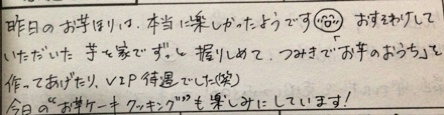 昨日のお芋ほりは、本当に楽しかったようです おすそわけして
いただいた 芋を家でずーっと握りしめて、つみきで「お芋のおうち」を
作ってあげたり、VIP待遇でした(笑)
今日の“お芋ケーキクッキング”も楽しみにしています!